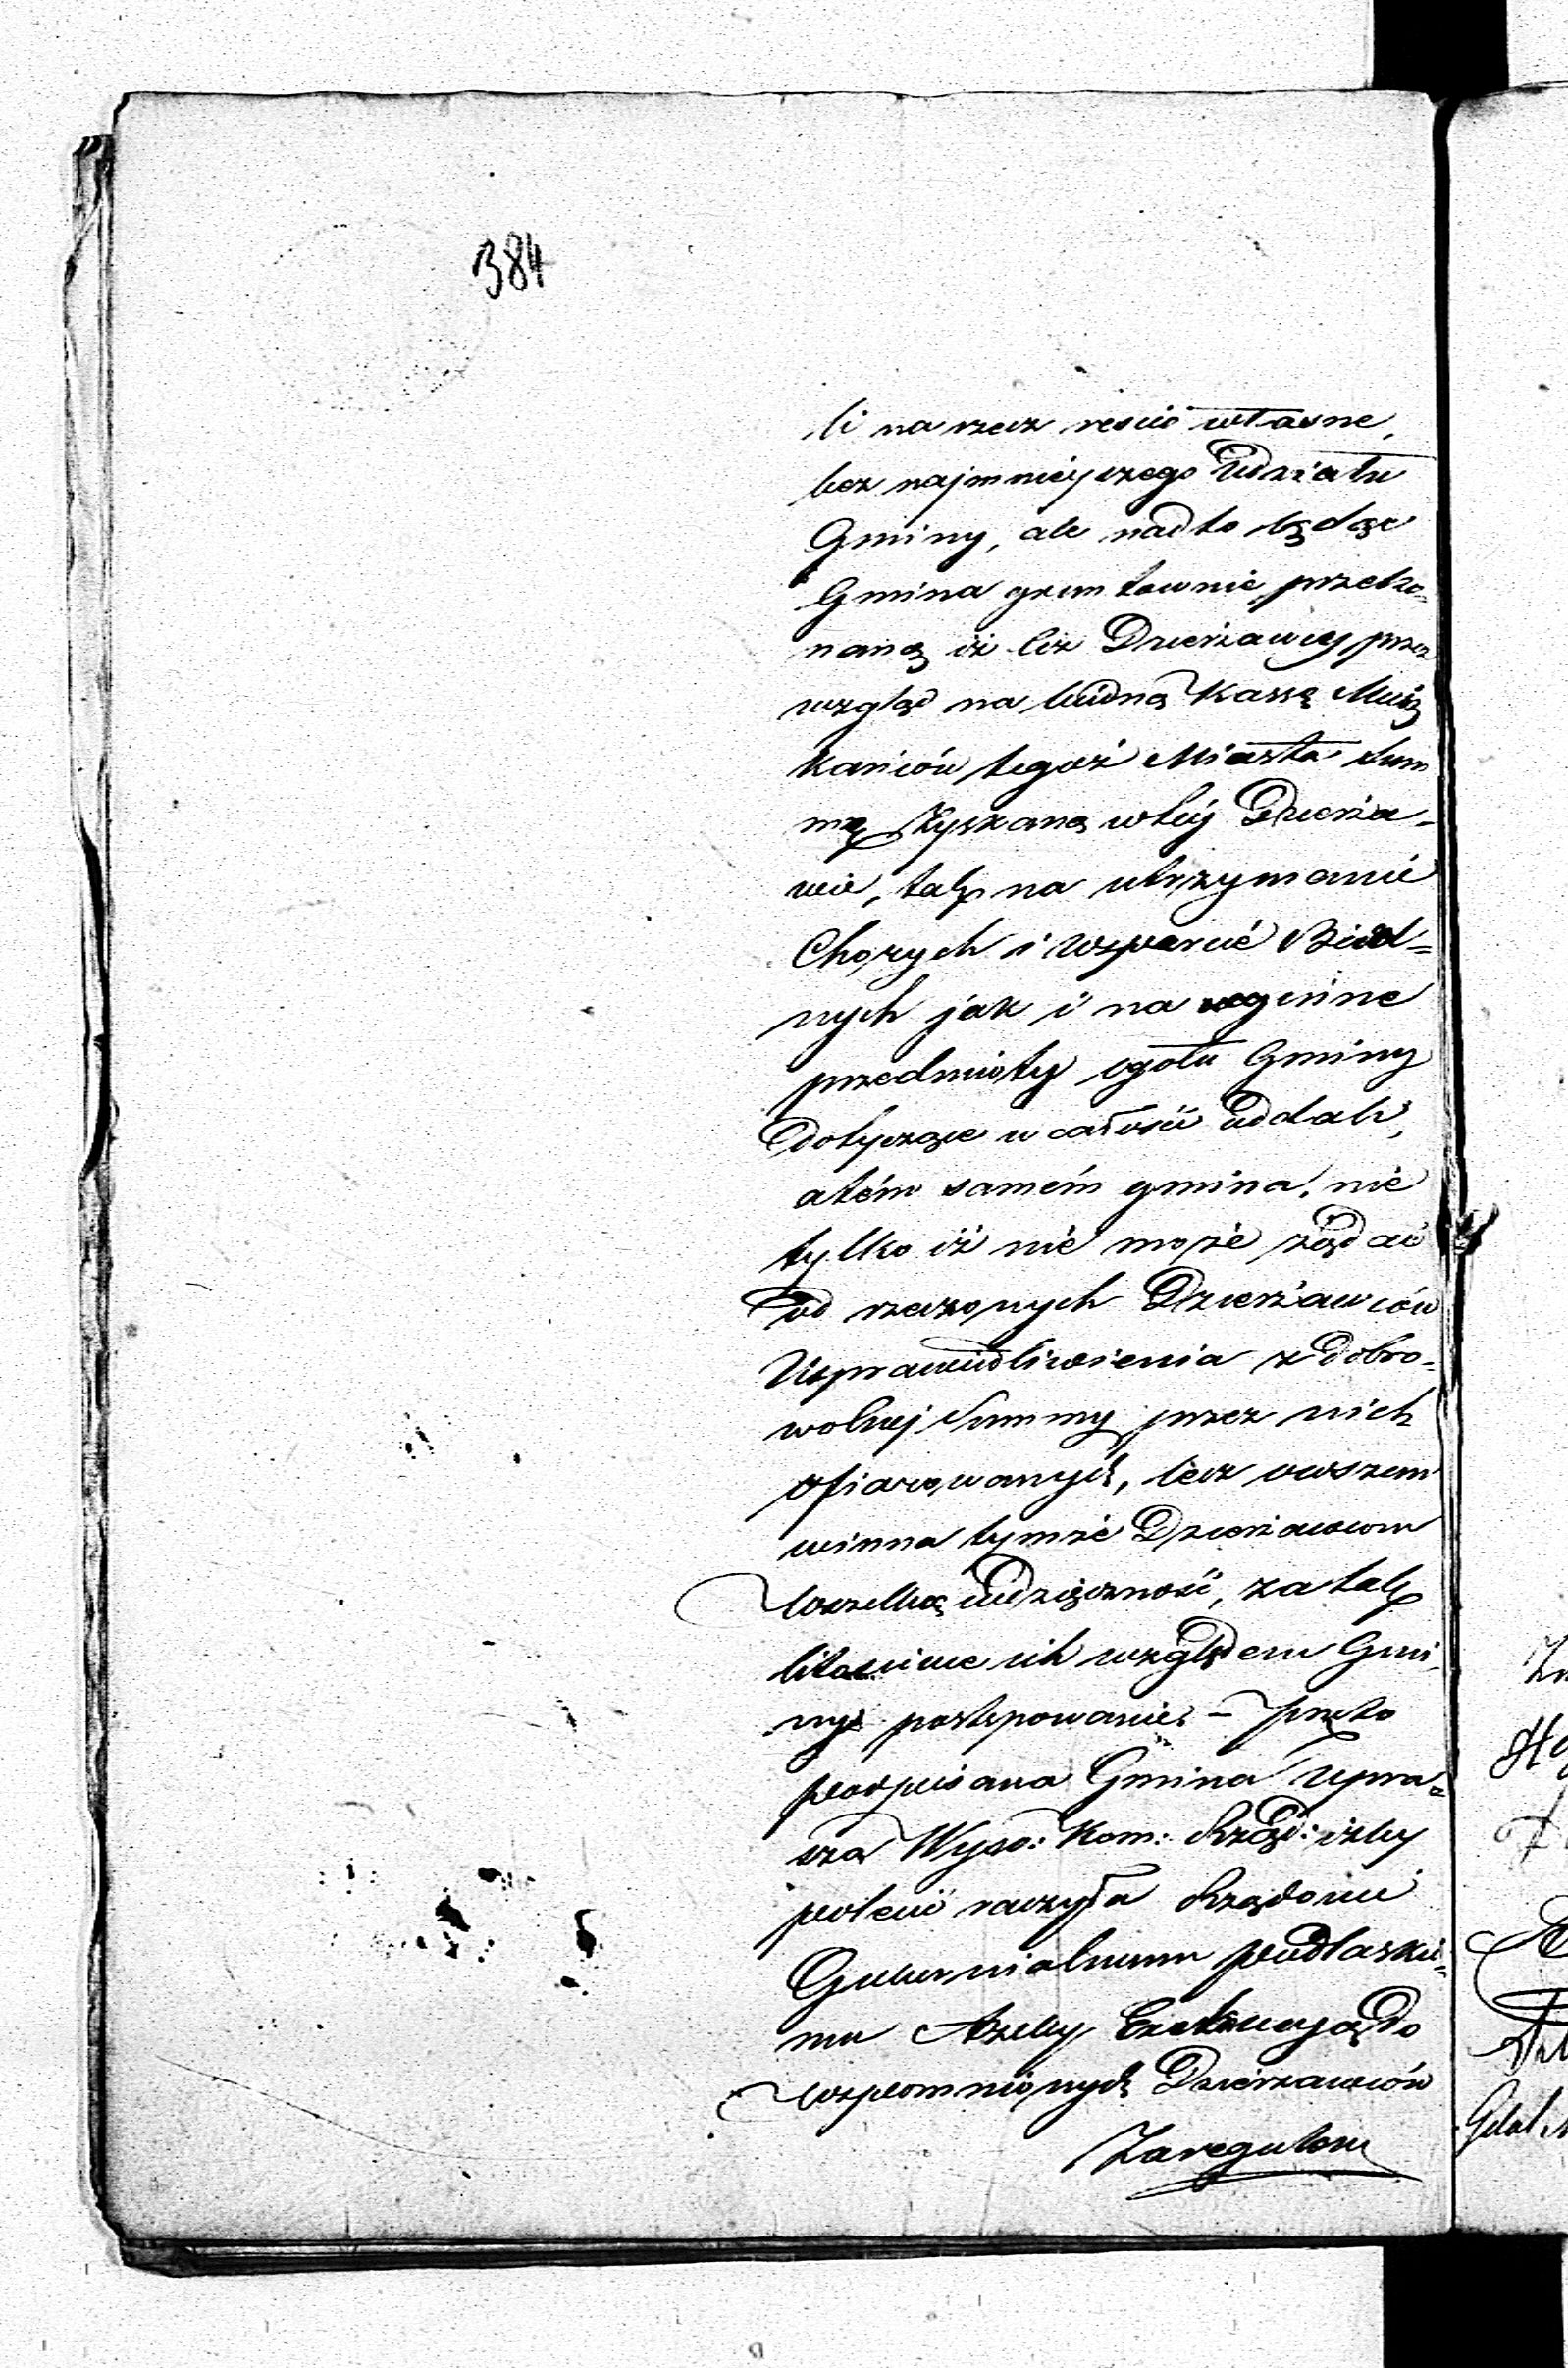 384
li na rzecz swoie własne,
bez najmniejszego Udziału
Gminy, ale nadto będąc
Gmina gruntownie przeko-
naną iż ciż Dzierżawcy przez
wzgląd na biedną Kassę Miesz
kańców tegoż Miasta Sum
mę Zyskaną w téj Dzierża-
wie, tak na utrzymanie
Chorych i wsparcie Bied=
nych jak i na inne
przedmioty ogółu Gminy
Dotyczące w całości oddali,
atém samém gmina, nie
tylko iż nie może żądać
od rzeczonych Dzierżawców
Usprawiedliwienia z dobro-
wolnej Summy przez nich
ofiarowanych, lecz owszem
winna tymże Dzierżawcom
wszelką wdzięczność, za tak
litościwe ich względem Gmi-
ny postępowanie. – Przeto
podpisana Gmina Upra=
sza Wyso: Kom: Rząd: iżby
polecić raczyła Rządowi
Gubernialnemu podlaskie=
mu Ażeby do
wspomnionych Dzierżawców
Zaregulow
Gdal